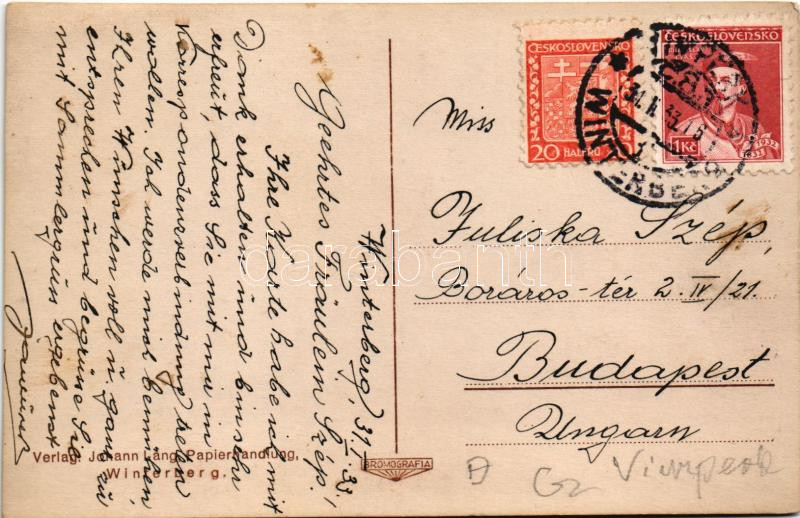 Winterberg, 31/I. 33.
Geehrtes Fräulein Szép!
Ihre Karte habe ich mit
Dank erhalten und bin sehr
erfreut, dass Sie mit mir in
Korrespondenzverbindung treten
wollen. Ich werde mich bemühen
Ihren Wünschen voll u. ganz zu
entsprechen und begrüsse Sie
mit Sammlergruss ergebenst
Verlag: Johann Lang, Papierhandlung,
Winterberg.
BROMOGRAFIA
ČESKOSLOVENSKO
20 HALÉŘŮ
ČESKOSLOVENSKO
1 Kč
1832
1932
WINTERBERG
Miss
Juliska Szép,
Boráros-tér 2. IV/21.
Budapest
Ungarn
Vimperk
darabanth